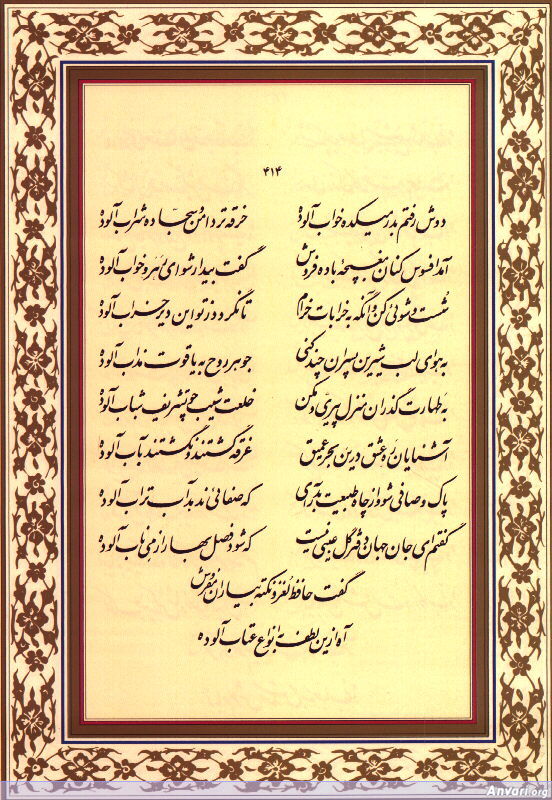 ۴۱۴
دوش رفتم بدر میکده خواب آلوده خرقه تر دامن و سجاده شراب آلوده
آمد افسوس کنان مغبچهٔ باده فروش گفت بیدار شو ای رهرو خواب آلوده
شست و شوئی کن و آنگه به خرابات خرام تا نگردد ز تو این دیر خراب آلوده
به هوای لب شیرین پسران چند کنی جوهر روح به یاقوت مذاب آلوده
به طهارت گذران منزل پیری و مکن خلعت شیب چو تشریف شباب آلوده
آشنایان ره عشق درین بحر عمیق غرقه گشتند و نگشتند بآب آلوده
پاک و صافی شو و از چاه طبیعت بدر آی که صفائی ندهد آب تراب آلوده
گفتم ای جان جهان دفتر گل عیبی نیست که شود فصل بهار از می ناب آلوده
گفت حافظ لغز و نکته بیاران مفروش
آه ازین لطف بانواع عتاب آلوده
Anvari.org